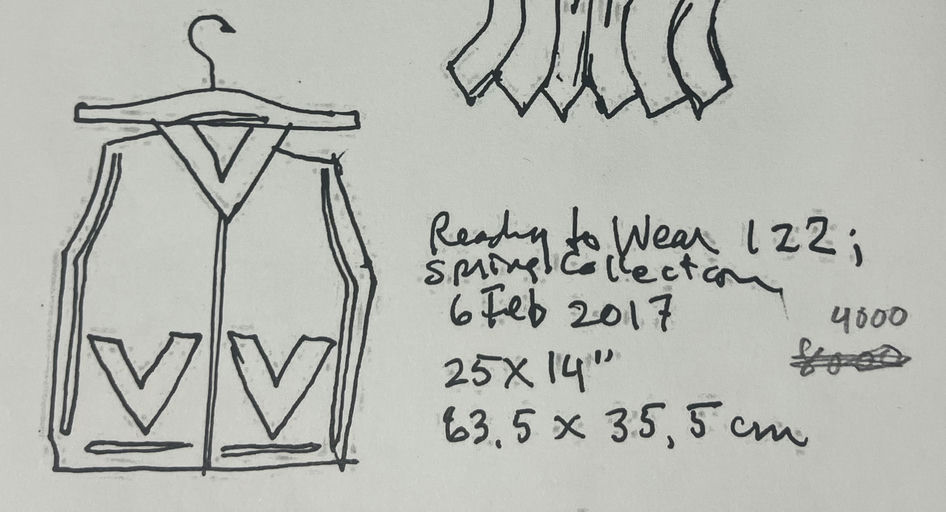 Ready to Wear 122;
Spring Collection
6 Feb 2017
4000
8000
25 x 14"
63,5 x 35,5 cm